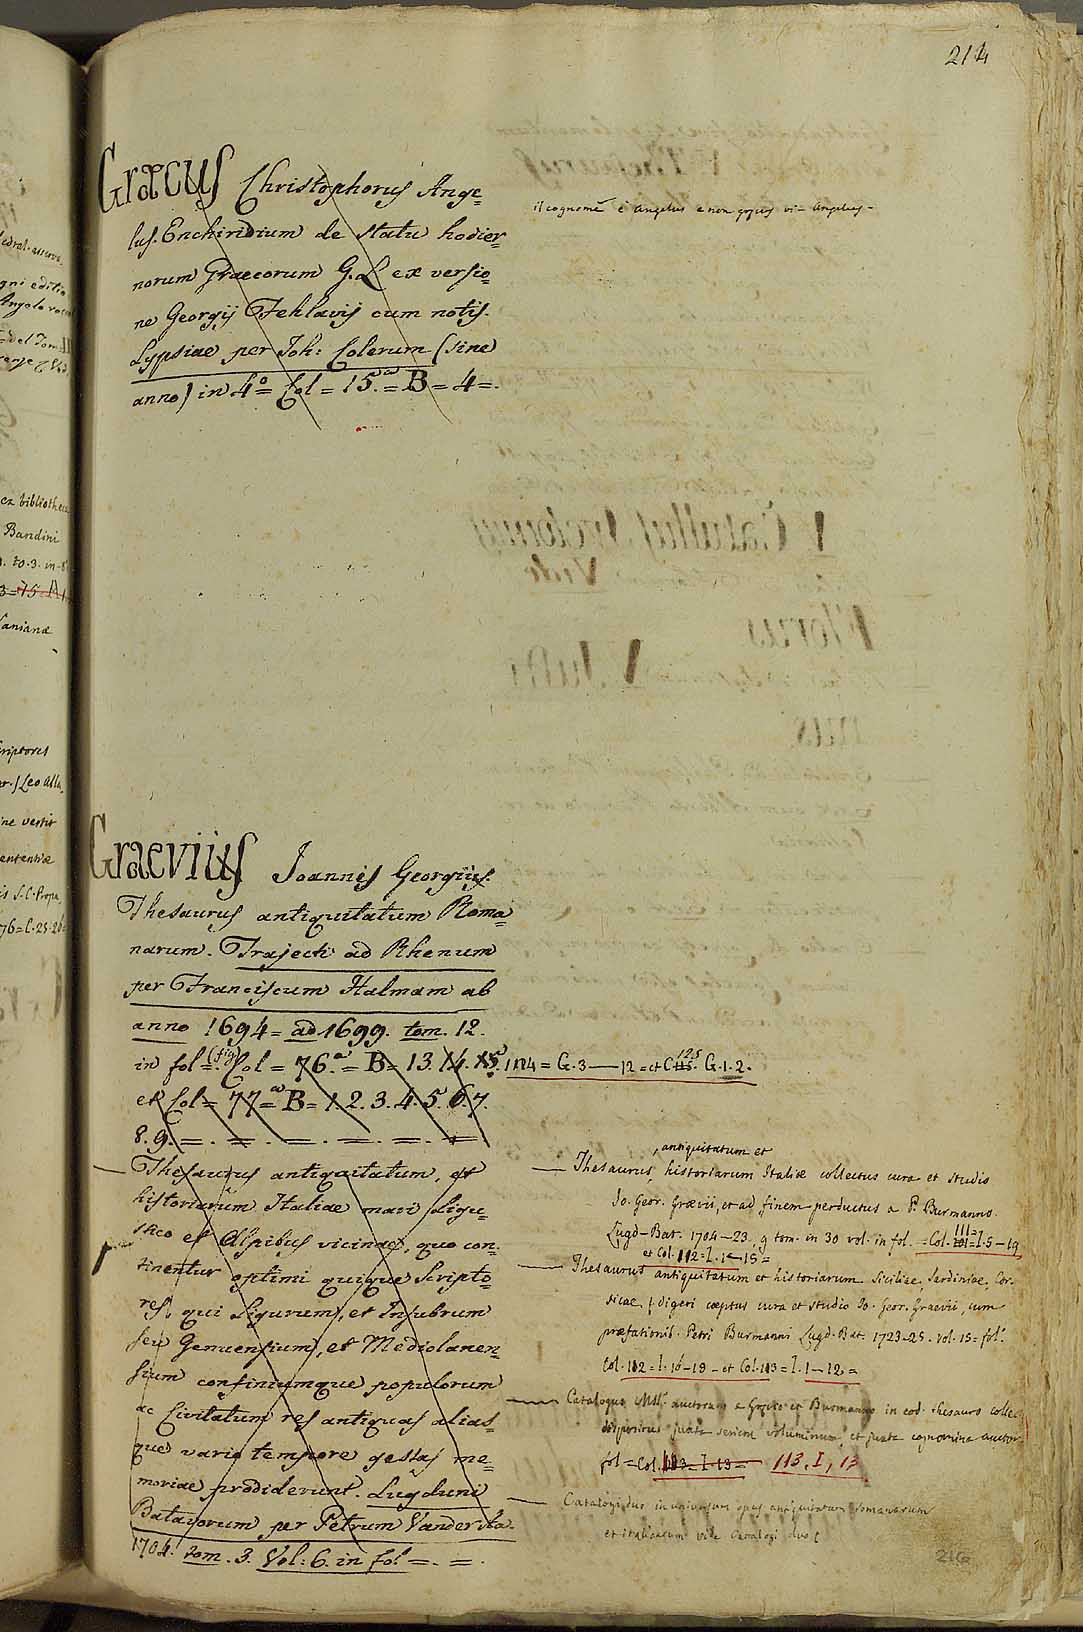 214
Græcus Christophorus Ange=
lus. Enchiridium de statu hodier=
norum Graecorum G. L ex versio=
ne Georgij Fehlavij cum notis.
Lypsiae per Joh: Colerum (sine
anno) in 4° = Col = 15.a = B = 4 = .
il cognome è Angelus e non
Graeviius Joannis Georgius.
Thesaurus antiquitatum Roma=
narum. Trajecti ad Rhenum
per Franciscum Halmam ab
anno 1694 = ad 1699. tom. 12.
in fol = (fig) Col = 76.a = B = 13. 14. 15. 114 = G. 3 — 12 = et C 125. G. 1. 2.
et Col = 77 = a B = 1. 2. 3. 4. 5. 6. 7.
8. 9. = . = . = . = . =
— Thesaurus antiquitatum, et
historiarum Italiae mari Ligu=
stico et Alpibus vicinae, quo con=
tinentur optimi quique Scripto=
res, qui Ligurum, et Insubrum
seu Genuensium, et Mediolanen=
sium confiniumque populorum
ac Civitatum res antiquas alias=
que vario tempore gestas me=
moriae prodiderunt. Lugduni
Batavorum per Petrum Vander Aa.
1704. tom. 3. Vol: 6. in fol = . = .
— Thesaurus antiquitatum et historiarum Italiæ collectus cura et studio
Jo. Geor. Grævii, et ad finem perductus a P. Burmanno.
Lugd-Bat. 1704-23. 9 tom. in 30 vol. in fol. = Col. 111 = I. 5 - 19
et Col. 112 = I. 1 - 15 =
— Thesaurus antiquitatum et historiarum Siciliae, Sardiniae, Cor=
sicae, digeri cæptus cura et studio Jo. Geor. Graevii, cum
præfationib. Petri Burmanni Lugd. Bat. 1723-25. vol. 15 = fol.
Col. 112 = I. 16 - 18 - et Col. 113 = I. 1 - 12 =
— Catalogus Mss. auctorum a Grævio et Burmanno in eod. thesauro collec
juxta seriem voluminum, et juxta cognomina auctor
fol = Col. 113 = I. 13 = 113. I, 13
— Catalogi duo in universum opus antiquitatum romanarum
et italicarum vide Catalogi duo
216